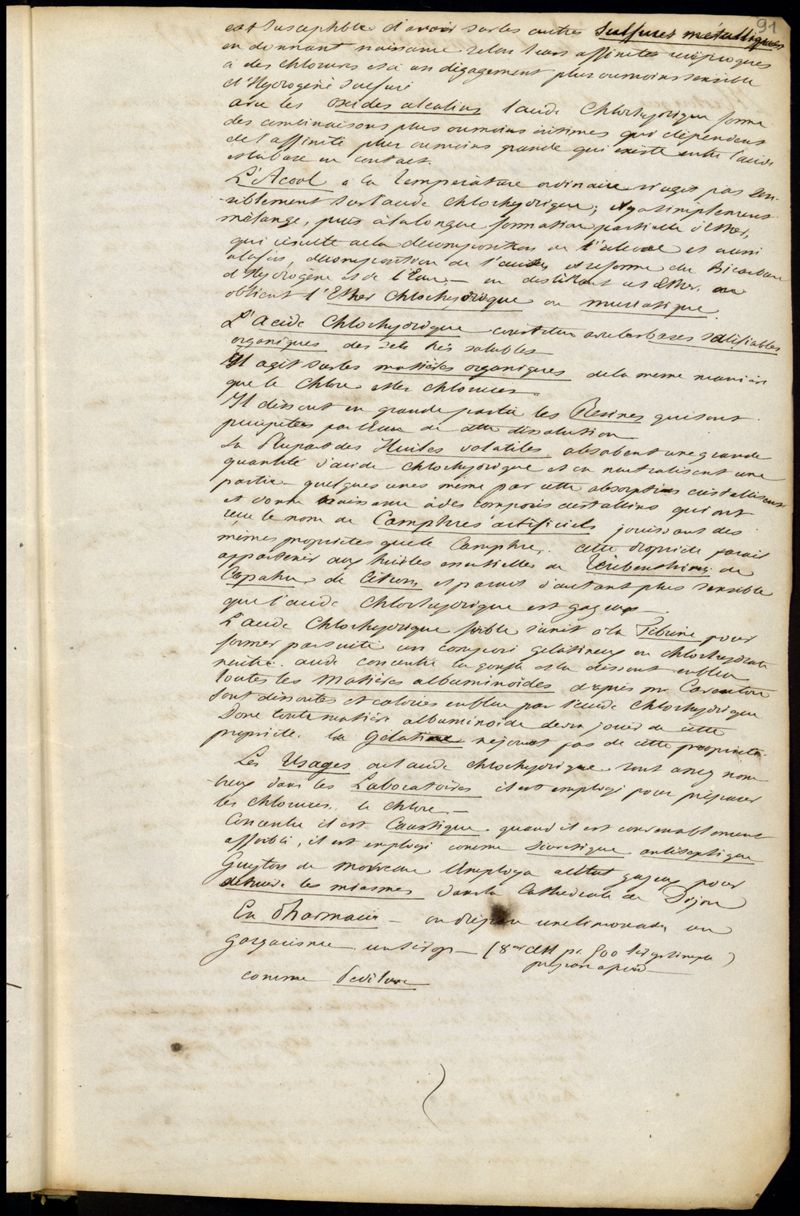 91
est susceptible d'avoir sur les autres sulfures métalliques
en donnant naissance selon leurs affinités réciproques
à des chlorures et à un dégagement plus ou moins sensible
d'Hydrogène sulfuré
avec les oxides alcalins l'acide Chlorhydrique forme
des combinaisons plus ou moins intimes qui dépendent
de l'affinité plus ou moins grande qui existe entre l'acide
et la base en contact.
L'Acool a la Température ordinaire n'agit pas sen-
siblement sur l'acide Chlorhydrique; il y a simplement
mélange, puis à la longue formation partielle d'Ether,
qui résulte de la décomposition de l'alcool et aussi
a la fois, décomposition de l'acide, et reforme du Bicarbure
d'Hydrogène et de l'Eau, – en distillant cet Ether, on
obtient l'Ether Chlorhydrique ou muriatique.
L'acide Chlorhydrique constitue avec les bases salifiables
organiques des sels très solubles
Il agit sur les matières organiques de la même manière
que le Chlore et les Chlorures.
Il dissout en grande partie les Resines qui sont
précipitées par l'eau de cette dissolution
La Plupart des Huiles volatiles absorbent une grande
quantité d'acide Chlorhydrique et en neutralisent une
partie quelques unes même par cette absorption cristallisent
et donne naissance à des composés cristallins qui ont
reçu le nom de Camphres artificiels jouissant des
mêmes propriétés que le Camphre. cette propriété parait
appartenir aux huiles essentielles de Térébenthine, de
Copahu, de Citron, et parait d'autant plus sensible
que l'acide Chlorhydrique est gazeux –
L'acide Chlorhydrique faible s'unit à la Fibrine pour
former par suite un composé gélatineux ou chlorhydrate
neutre. acide concentré la gonfle et la dissout en bleu
toutes les matières albuminoïdes d'après mr Caventou
sont dissoutes et colorées en bleu par l'acide Chlorhydrique
Donc toute matière albuminoïde devra jouir de cette
propriété. la Gélatine ne jouit pas de cette propriété
Les Usages de l'acide Chlorhydrique sont assez nom-
breux dans les Laboratoires il est employé pour préparer
les chlorures le chlore –
Concentré il est Caustique quand il est convenablement
affaibli, il est employé comme escarotique antiseptique
Guyton de Morveau l'employa à l'état gazeux pour
détruire les miasmes dans la Cathédrale de Dijon
En Pharmacie – on prépare une limonade, un
Gargarisme un sirop – (8 gr d'AH pr 500 sirop simple)
comme Pédiluve